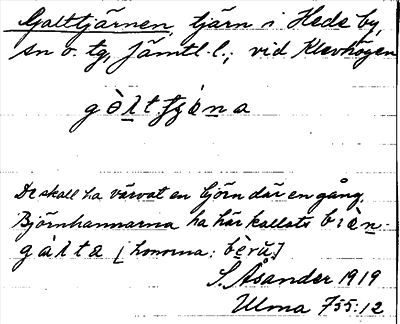 Galttjärnen, tjärn i Hede by,
sn o. tg, Jämtl. l.; vid Klevhögen
gàltţșæ̀na
De skall ha värvat en björn där en gång.
Björnhannarna ha här kallats bìæṇ-
gàlta [honorna: bèrŭ.]
S. Åsander 1919
Ulma 755:12